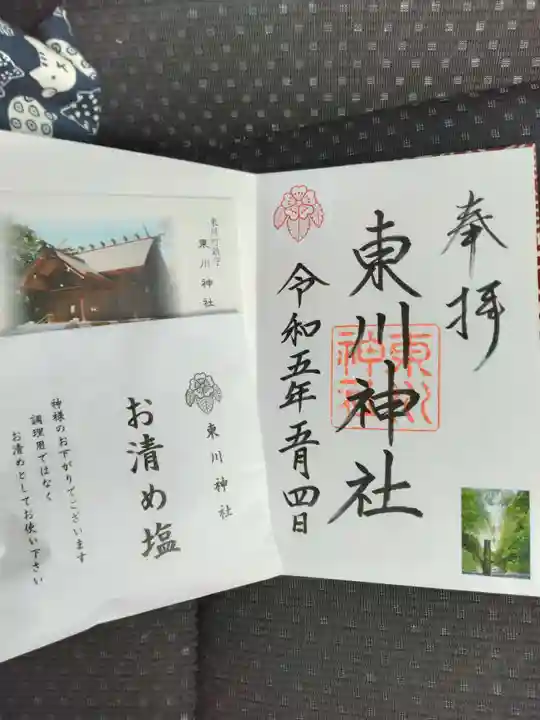 奉拝
東川神社
東川神社
令和五年五月四日
東川町鎮守
東川神社
東川神社
お清め塩
神様のお下がりでございます
調理用ではなく
お清めとしてお使い下さい